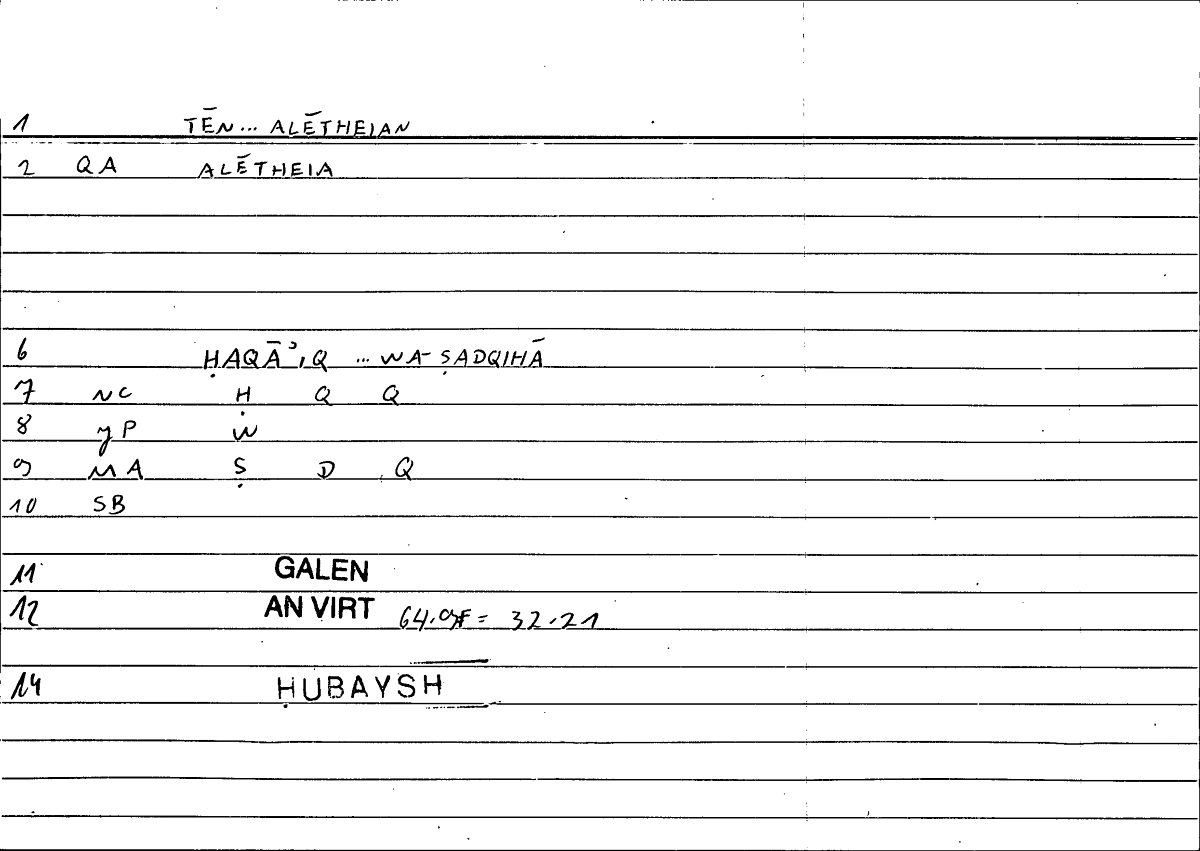 1 TĒN... ALĒTHEIAN
2 QA ALĒTHEIA
6 ḤAQĀʾIQ ... WA-ṢADQIHĀ
7 NC Ḥ Q Q
8 yP W
9 MA Ṣ D Q
10 SB
11 GALEN
12 AN VIRT 64.9F = 32.21
14 ḤUBAYSH